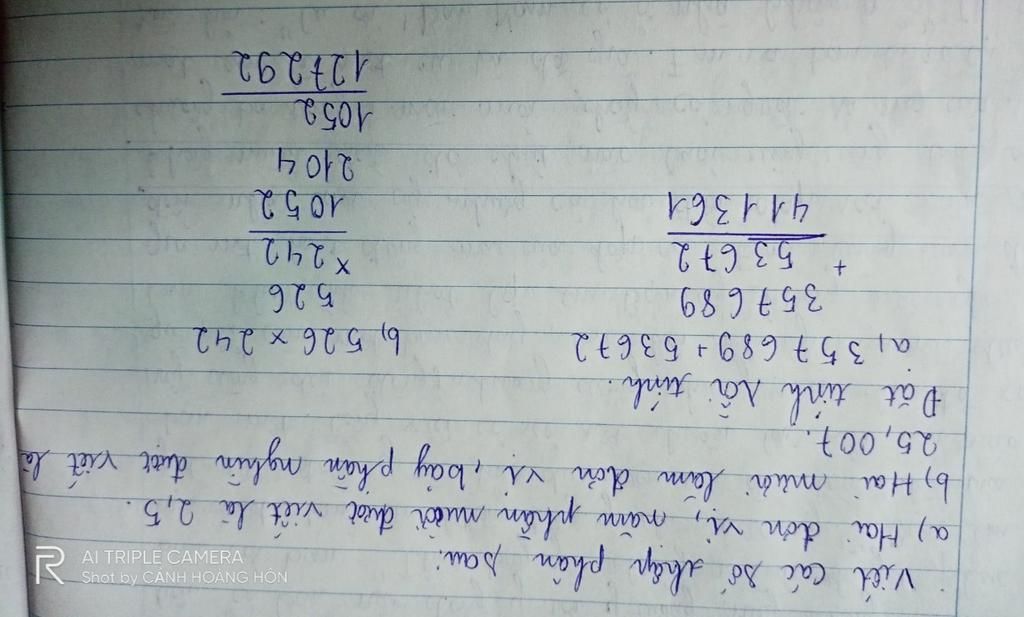 Viết các số thập phân sau:
a) Hai đơn vị, năm phần mười được viết là 2,5.
b) Hai mươi lăm đơn vị, bảy phần nghìn được viết là
25,007.
Đặt tính rồi tính.
a, 357689 + 53672
b, 526 × 242
357689
+
53672
411361
526
×
242
1052
2104
1052
127292
R
AI TRIPLE CAMERA
Shot by CẢNH HOÀNG HÔN